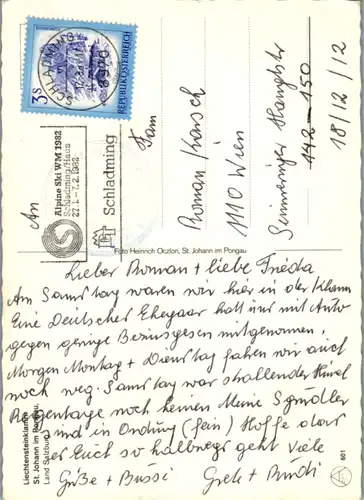 SCHLADMING
8970
3S
REPUBLIK ÖSTERREICH
Alpine Ski WM 1982
Schladming/Haus
27.1.-7.2.1982
Schladming
An
Fam
Roman Karsch
1110 Wien
Simmeringer Hauptstr
142-150
18/12/12
Foto Heinrich Oczlon, St. Johann im Pongau
Lieber Roman + liebe Frieda
Am Samstag waren wir hier in der Klamm
Eine Deutsches Ehepaar hatt uns mit Auto
gegen geringe Benzinspesen mitgenommen,
Morgen Montag + Dienstag fahren wir auch
noch weg. Samstag war strahlender Himmel
Regentage noch keinen Meine
sind in Ordnung (fein) Hoffe das
er Euch so halbwegs geht Viele
Grüße + Bussi Grete + Rudi
Liechtensteinklamm
St. Johann im Pongau
Land Salzburg
601